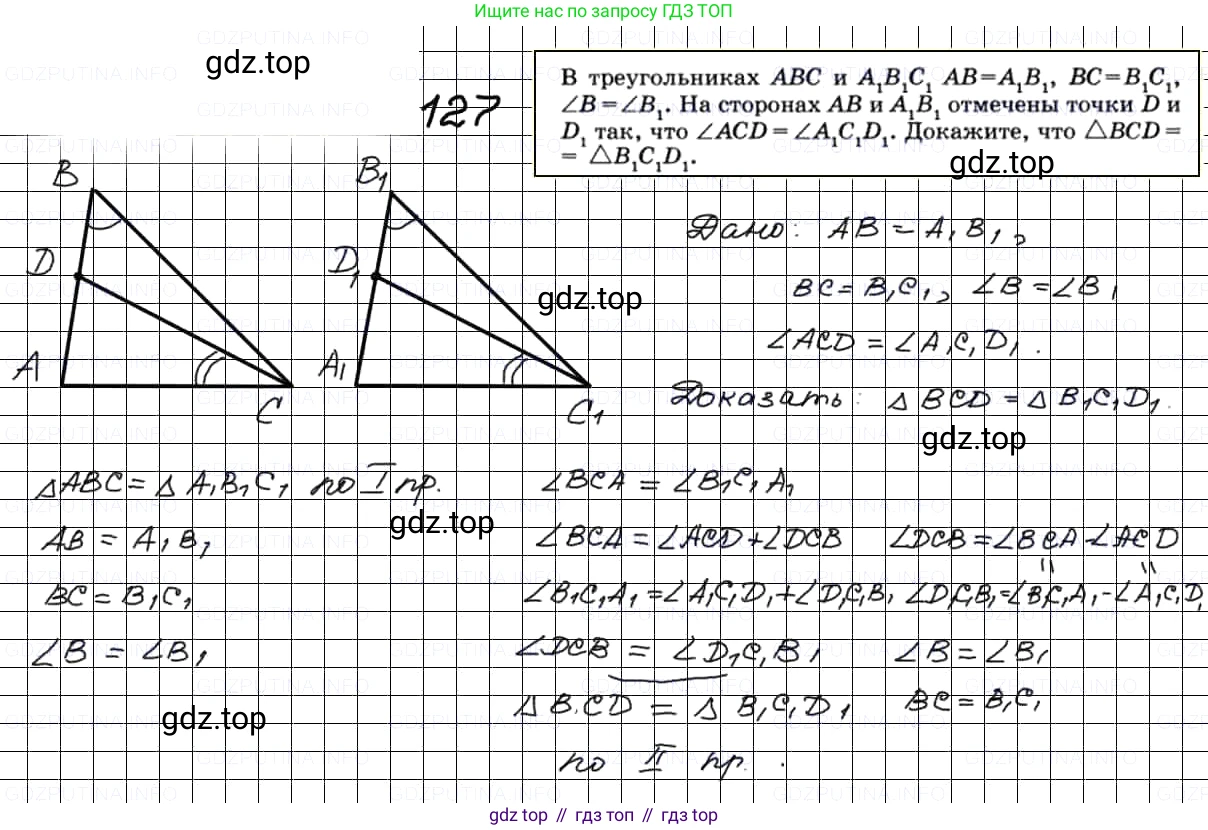 Ищите нас по запросу ГДЗ ТОП
gdz.top
127
В треугольниках ABC и A₁B₁C₁ AB=A₁B₁, BC=B₁C₁,
∠B=∠B₁. На сторонах AB и A₁B₁ отмечены точки D и
D₁ так, что ∠ACD=∠A₁C₁D₁. Докажите, что △BCD=
= △B₁C₁D₁.
gdz.top
B
D
A
C
B₁
D₁
A₁
C₁
gdz.top
Дано: AB = A₁B₁,
BC = B₁C₁, ∠B = ∠B₁
∠ACD = ∠A₁C₁D₁.
Доказать: △BCD = △B₁C₁D₁.
gdz.top
△ABC = △A₁B₁C₁ по I пр.
gdz.top
AB = A₁B₁
BC = B₁C₁
∠B = ∠B₁
gdz.top
∠BCA = ∠B₁C₁A₁
∠BCA = ∠ACD + ∠DCB ∠DCB = ∠BCA - ∠ACD
∠B₁C₁A₁ = ∠A₁C₁D₁ + ∠D₁C₁B₁ ∠D₁C₁B₁ = ∠B₁C₁A₁ - ∠A₁C₁D₁
∠DCB = ∠D₁C₁B₁ ∠B = ∠B₁
△BCD = △B₁C₁D₁ BC = B₁C₁
по II пр.
gdz.top // гдз топ // gdz top
GDZPUTINA.INFO